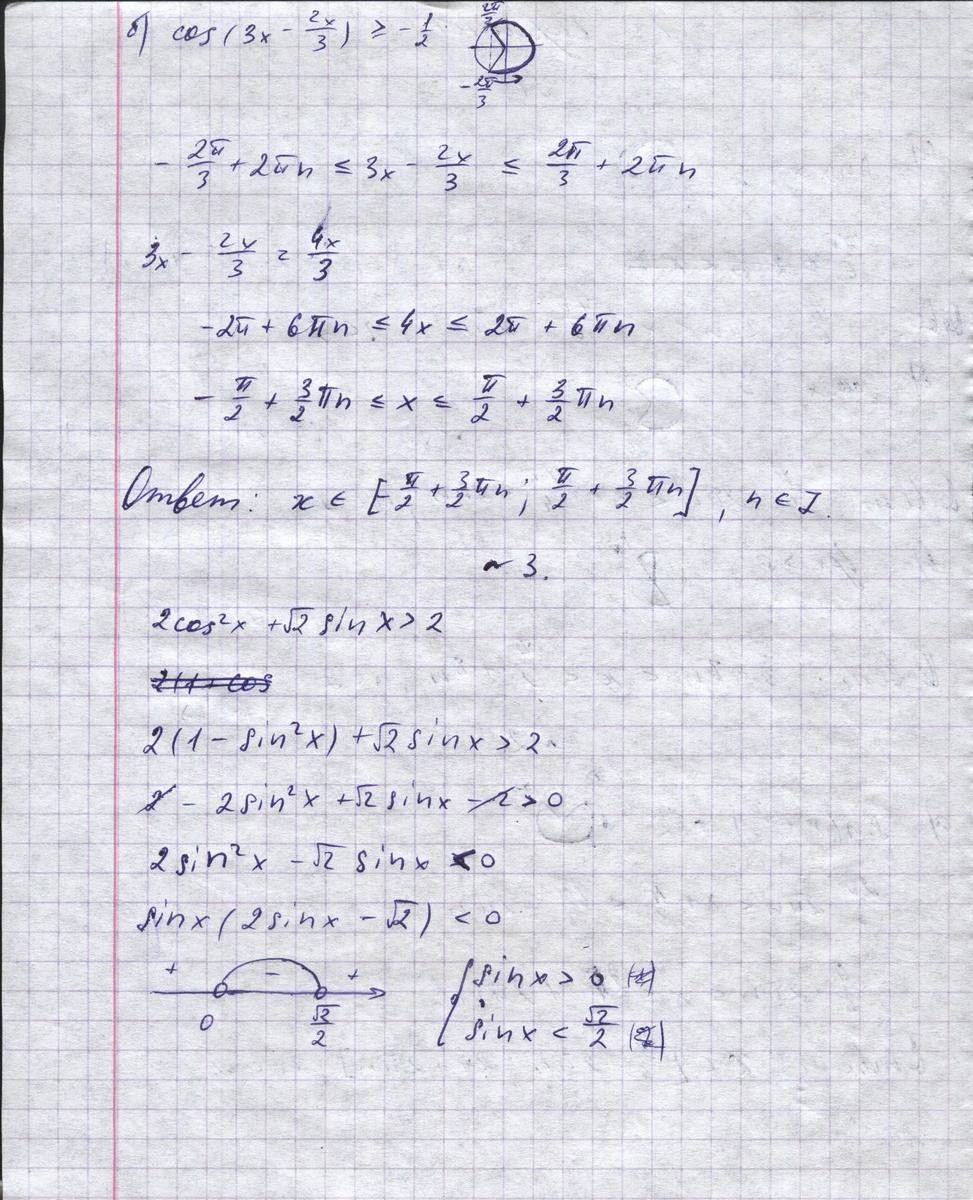 б) cos(3x - 2x/3) ≥ -1/2 2π/3 -2π/3
-2π/3 + 2πn ≤ 3x - 2x/3 ≤ 2π/3 + 2πn
3x - 2x/3 = 4x/3
-2π + 6πn ≤ 4x ≤ 2π + 6πn
-π/2 + 3/2 πn ≤ x ≤ π/2 + 3/2 πn
Ответ: x ∈ [-π/2 + 3/2 πn; π/2 + 3/2 πn], n ∈ Z.
~ 3.
2cos²x + √2 sin x > 2
2(1 + cos
2(1 - sin²x) + √2 sin x > 2
2 - 2sin²x + √2 sin x - 2 > 0
2sin²x - √2 sin x < 0
sin x (2sin x - √2) < 0
+ - + sin x > 0
0 √2/2 sin x < √2/2